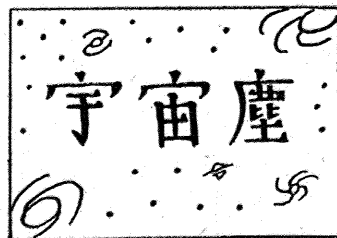 宇宙塵